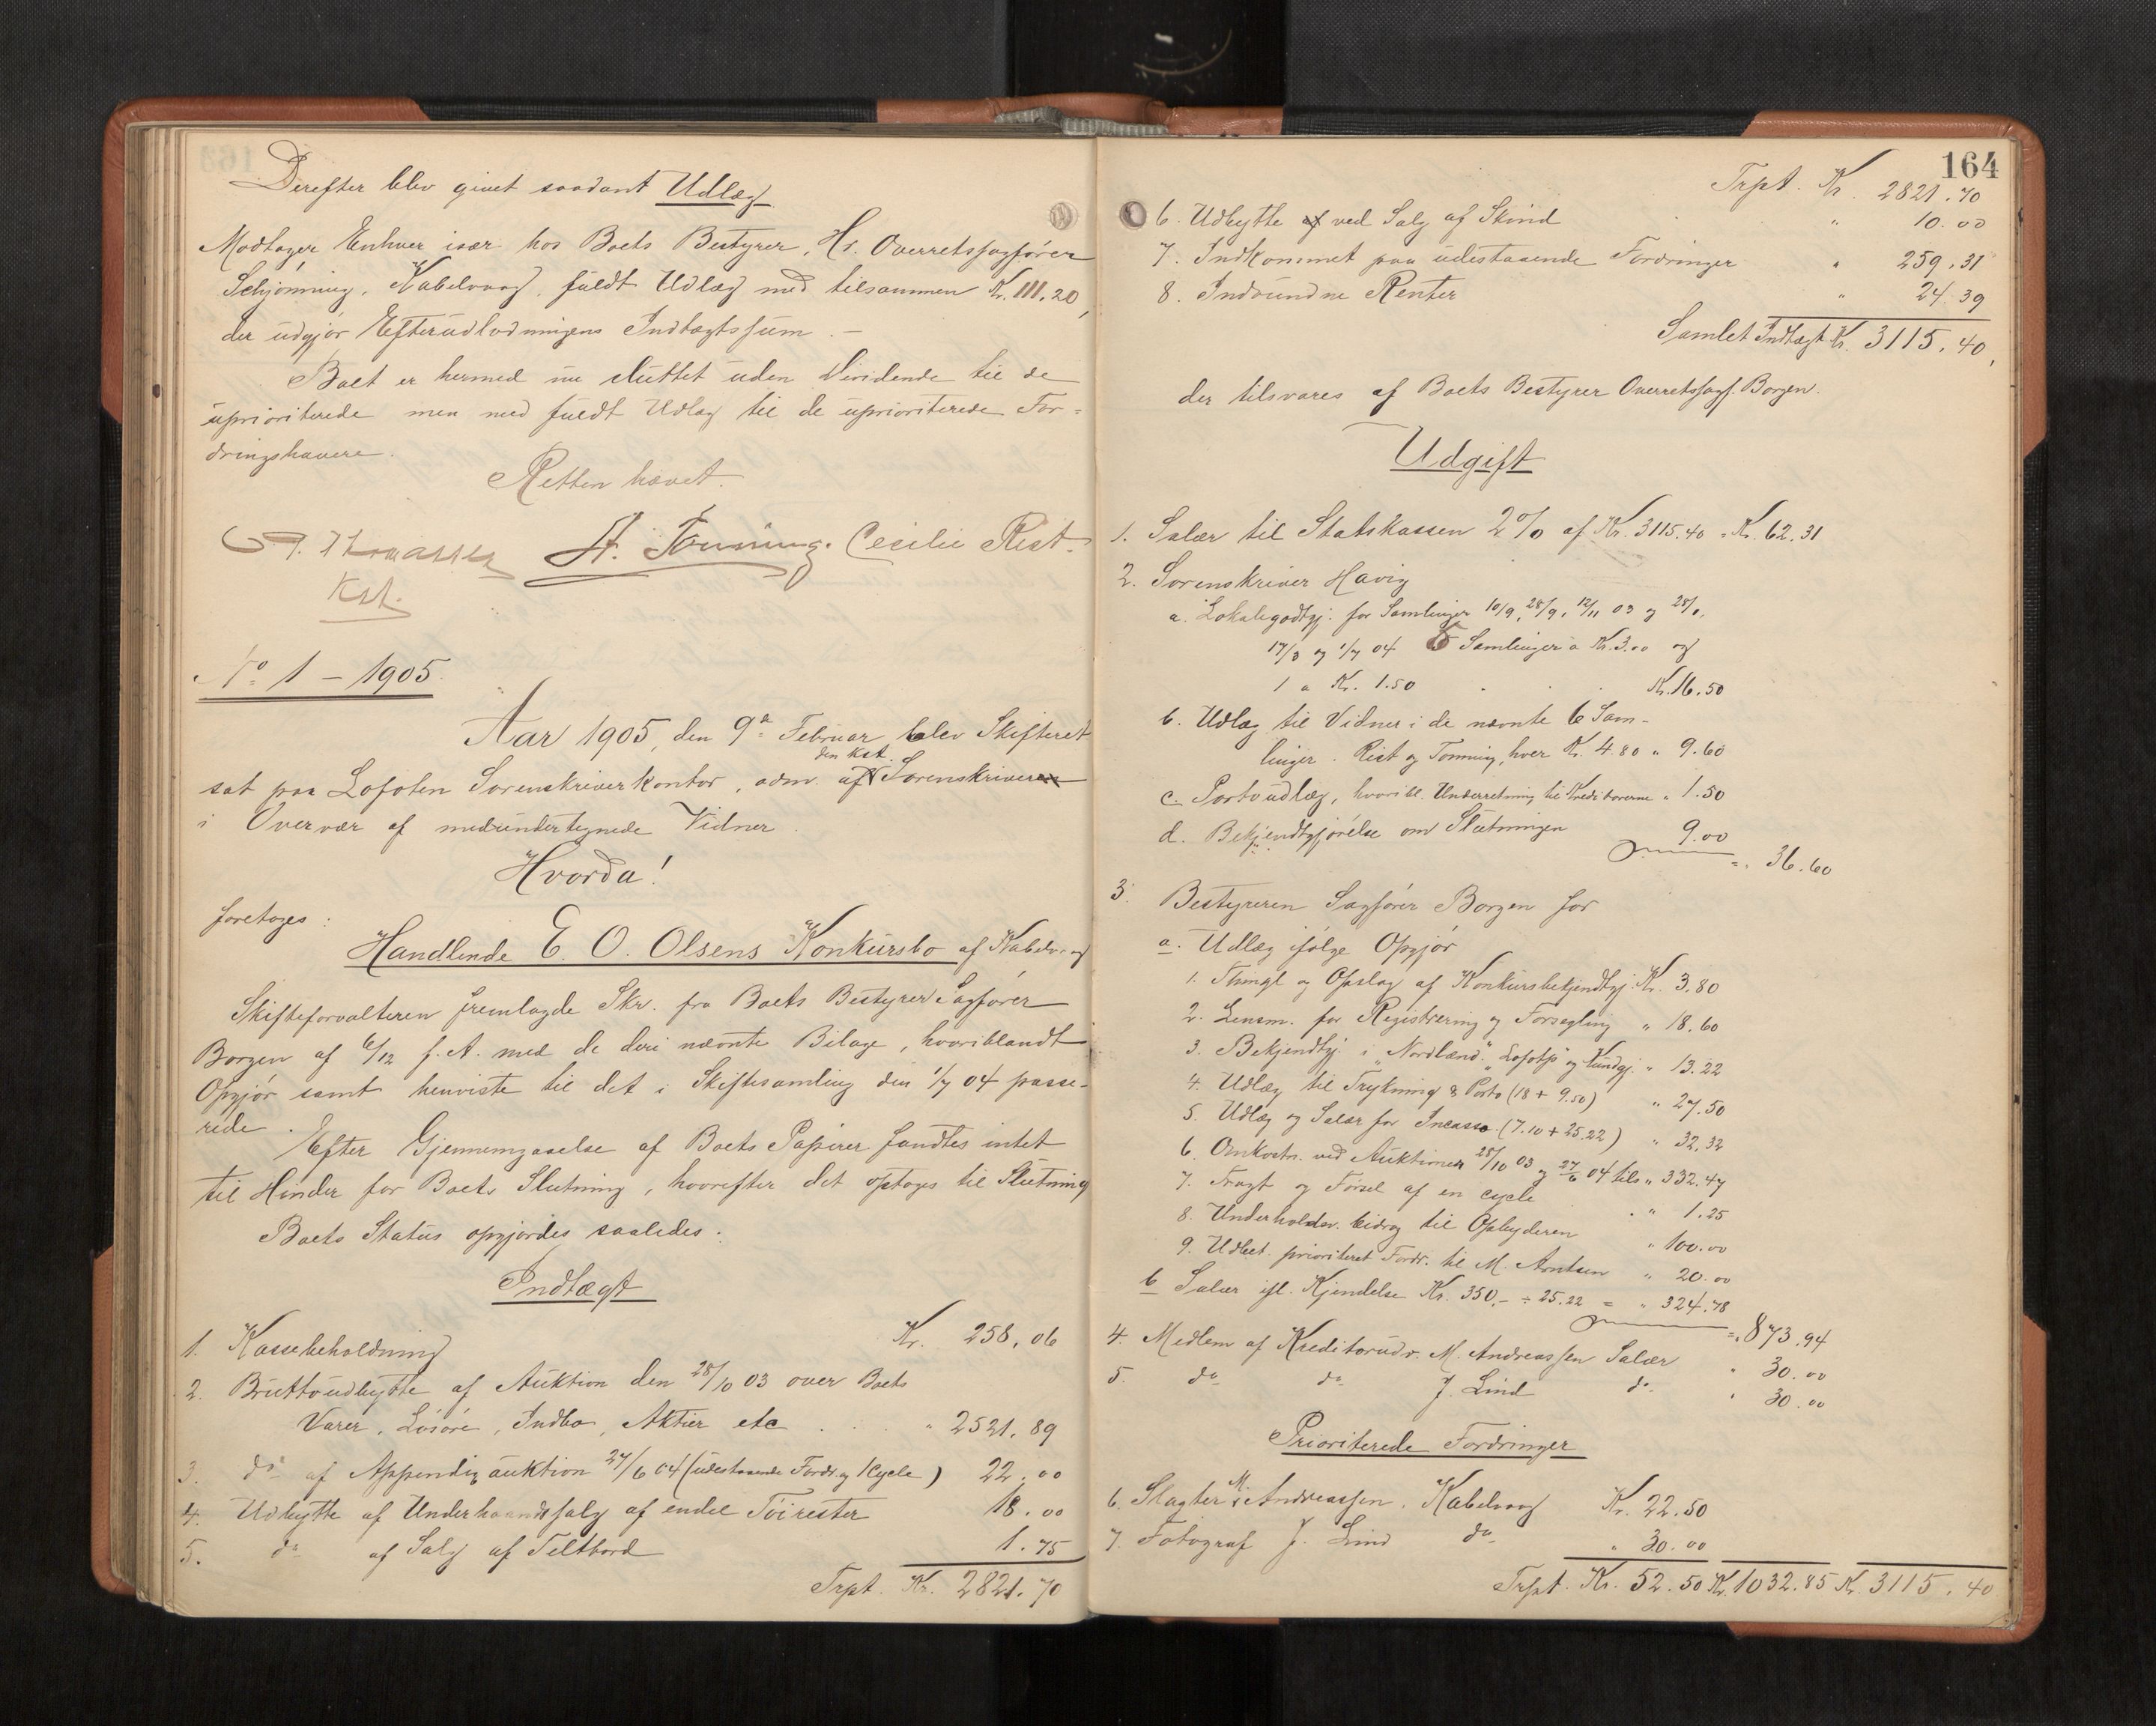 Derefter blev givet saadant Udlæg
Modtager Enhver især hos Boets Bestyrer, Hr. Overretssagfører
Schjønning, Kabelvaag, fuldt Udlæg med tilsammen Kr. 111.20,
der udgjør Efterudlodningens Indtægtssum. –
Boet er hermed nu sluttet uden Dividende til de
uprioriterede men med fuldt Udlæg til de uprioriterede For=
dringshavere.
Retten hævet.
Thomassen A. Tønning. Cecilie Rist.
Kst.
No 1 – 1905.
Aar 1905, den 9de Februar blev Skifteret
sat paa Lofoten Sorenskriverkontor, adm. af den kst. Sorenskriveren
i Overvær af medundertegnede Vidner.
Hvorda!
foretoges:
Handlende E. O. Olsens Konkursbo af Kabelvaag
Skifteforvalteren fremlagde Skr. fra Boets Bestyrer Sagfører
Borgen af 6/12 f. A. med de deri nævnte Bilage, hvoriblandt
Opgjør samt henviste til det i Skiftesamling den 1/7 04 passe-
rede.
Efter Gjennemgaaelse af Boets Papirer fandtes intet
til Hinder for Boets Slutning, hvorefter det optoges til Slutning
Boets Status opgjordes saaledes:
Indtægt
1. Kassebeholdning Kr. 258,06
2. Bruttoudbytte af Auktion den 28/10 03 over Boets
Varer, Løsøre, Indbo, Aktier etc . . . " 2521.89
3. do af Appendix auktion 27/6 04 (udestaaende Fordr. og 1 Cycle) 22.00
4. Udbytte af Underhaandssalg af endel Tøirester 18.00
5. do af Salg af Teltbord 1.75
Trpt. Kr. 2821.70
164
Trpt. Kr. 2821.70
6. Udbytte af ved Salg af Skind " 10.00
7. Indkommet paa udestaaende Fordringer " 259.31
8. Indvundne Renter " 24.39
Samlet Indtægt Kr. 3115.40,
der tilsvares af Boets Bestyrer Overretssagf. Borgen.
Udgift
1. Salær til Statskassen 2 % af Kr. 3115.40 = Kr. 62.31
2. Sorenskriver Havig
a. Lokalegodtgj. for Samlinger 10/9, 28/9, 12/11 03 og 28/1,
17/3 og 1/7 04 5 Samlinger a Kr. 3.00 og
1 a Kr. 1.50 . . . Kr. 16.50
b. Udlæg til Vidner i de nævnte 6 Sam-
linger. Rist og Tønning, hver Kr. 4.80 " 9.60
c. Portoudlæg, hvoribl. Underretning til Kreditorerne " 1.50
d. Bekjendtgjørelse om Slutningen 9.00
=. 36.60
3. Bestyreren Sagfører Borgen for
a. Udlæg ifølge Opgjør
1. Thingl. og Opslag af Konkursbekjendtgj. Kr. 3.80
2. Lensm. for Registrering og Forsegling " 18.60
3. Bekjendtgj. i "Nordland", "Lofotp" og Kundgj. " 13.22
4. Udlæg til Trykning & Porto (18 + 9.50) " 27.50
5. Udlæg og Salær for Incasso (7.10 + 25.22) " 32,32
6. Omkostn. ved Auktionen 28/10 03 og 27/6 04 tils " 332.47
7. Fragt og Førsel af en cycle " 1.25
8. Underholdn. bidrag til Opbyderen " 100.00
9. Udbet. prioriteret Fordr. til M. Arntsen " 20.00
b Salær ifl. Kjendelse Kr. 350,- ÷ 25.22 = " 324.78
=. 873.94
4. Medlem af Kreditorudv. M. Andreassen Salær " 30.00
5. do do J. Lind do " 30.00
Prioriterede Fordringer
6. Slagter M. Andreassen, Kabelvaag Kr. 22.50
7. Fotograf J. Lind do " 30.00
Trpt. Kr. 52.50 Kr. 1032.85 Kr. 3115.40